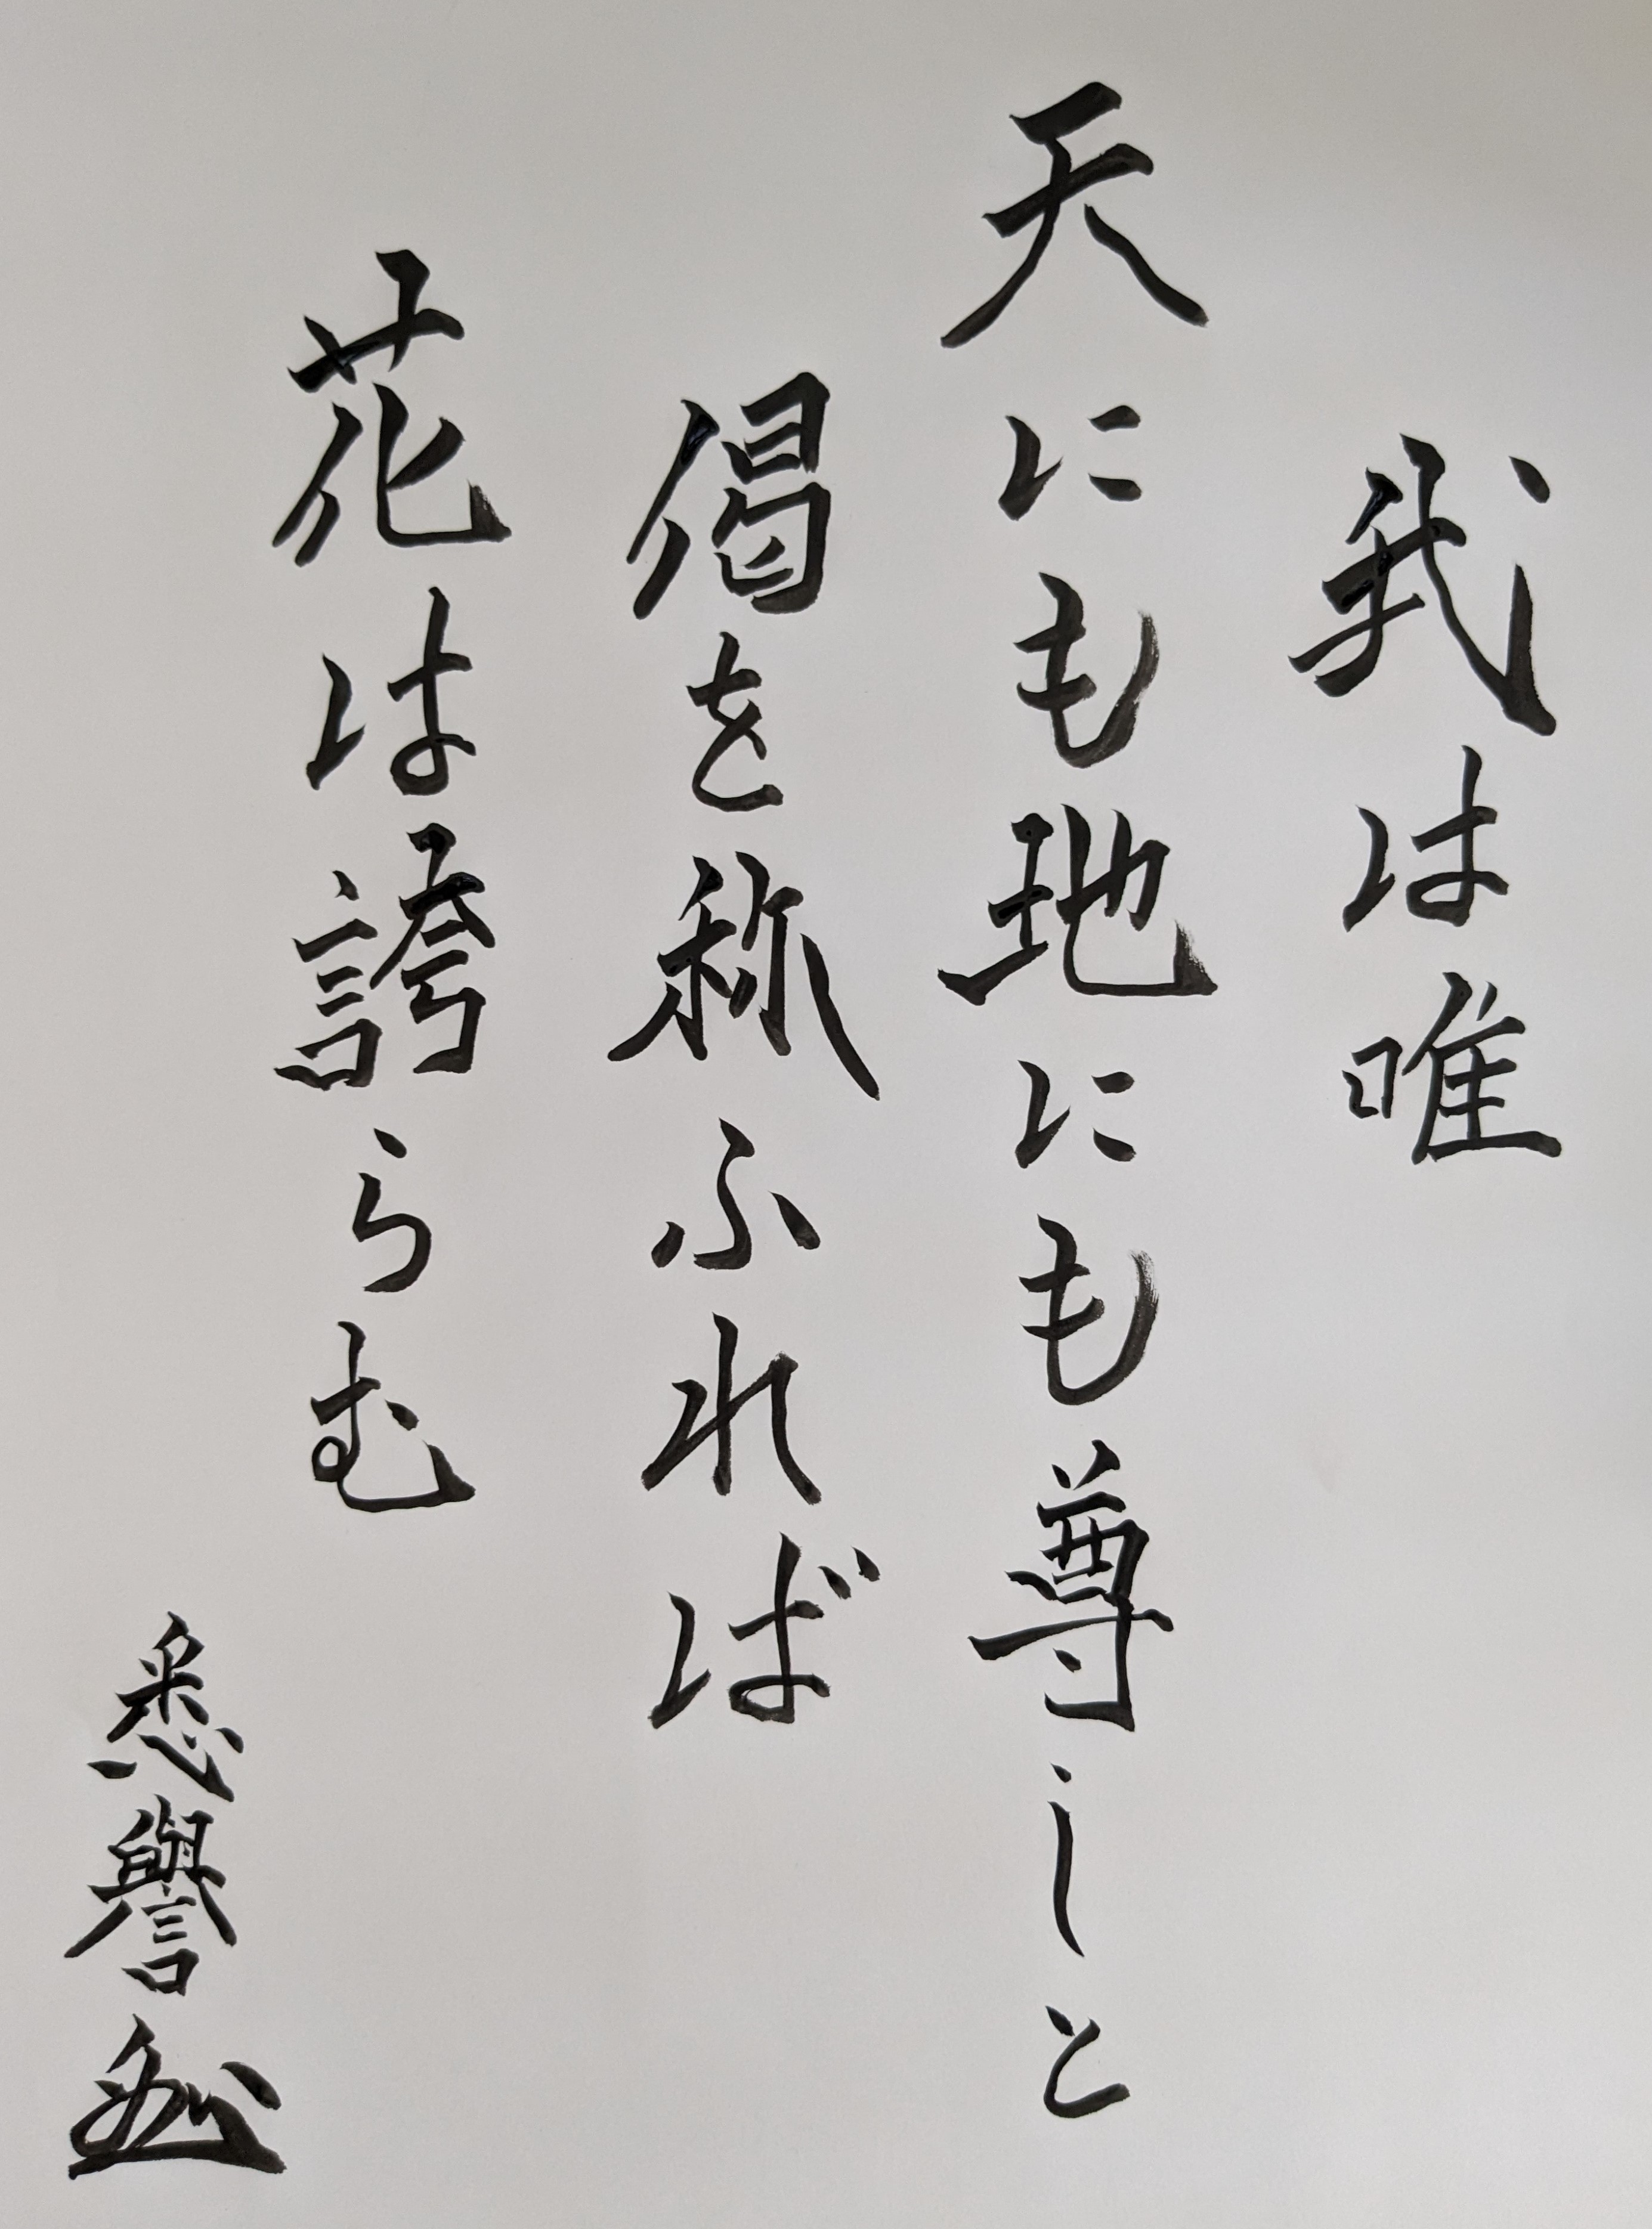 我は唯
天にも地にも尊しと
偈を称ふれば
花は誇らむ
悉譽